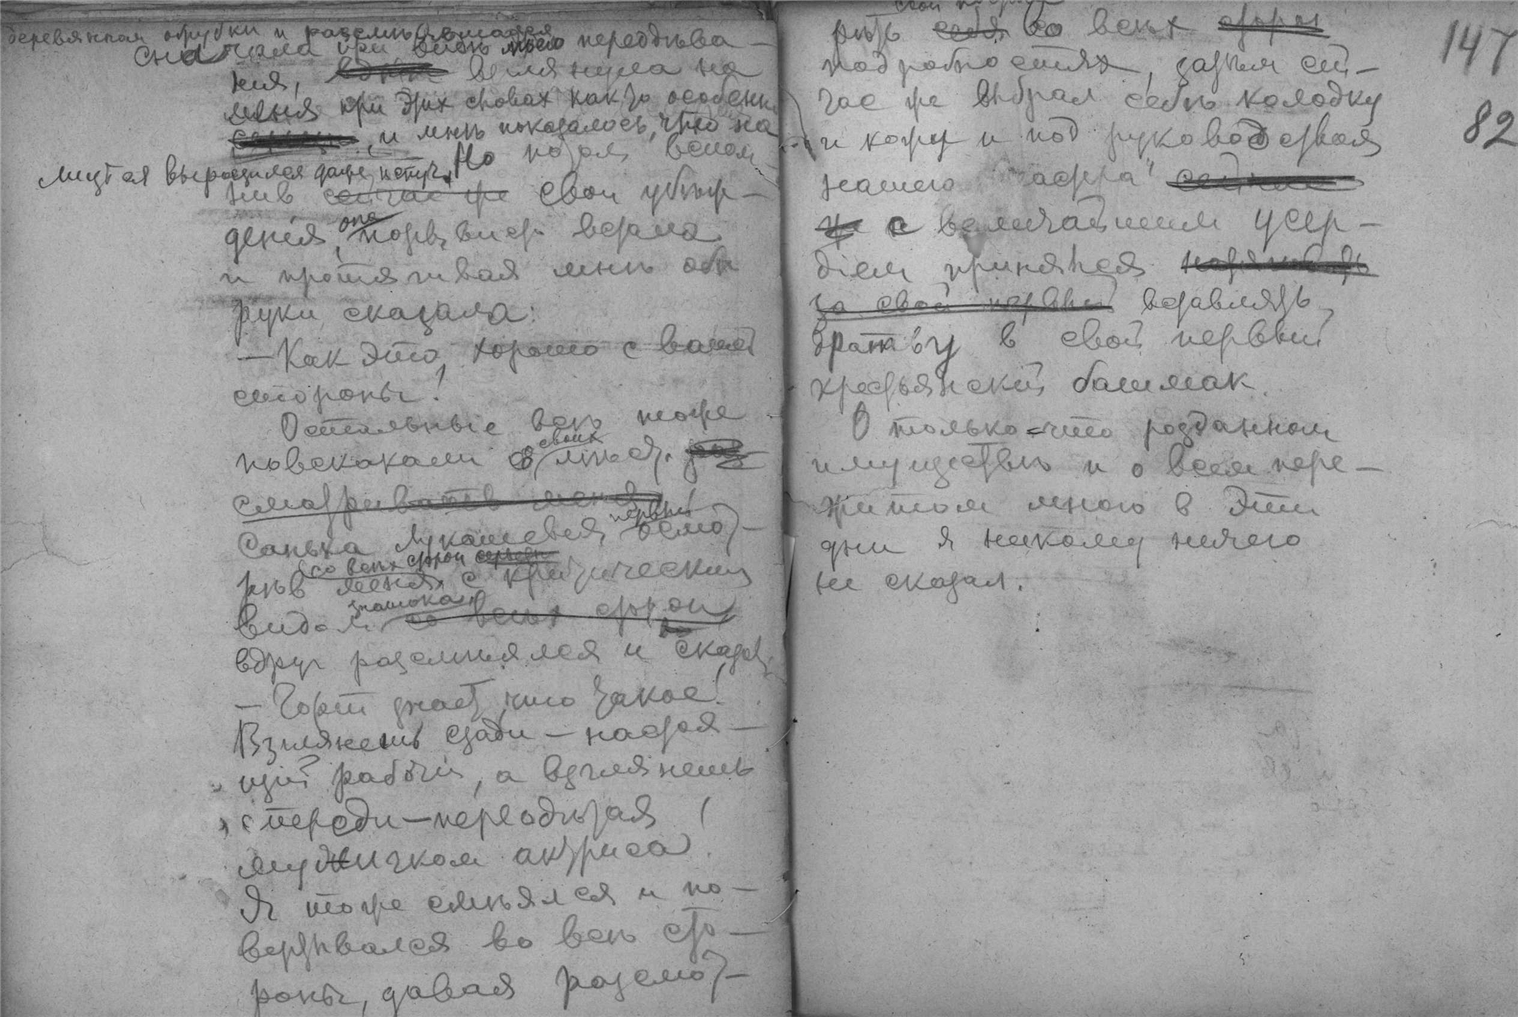 деревянная обрубки и
сначала при моего переодѣва-
нія, взглянула на
меня при этих словах как то особенно
и мнѣ показалось, что на
лицѣ ея выразился даже испуг. Но потом вспом-
нив сейчас же свои убѣж-
денія, она встала
и протягивая мнѣ обѣ
руки, сказала:
— Как это хорошо с вашей
стороны!
Остальные всѣ тоже
повскакали с своих мѣст.
сматривать меня
Санька Лукашевич первый осмот-
рѣв меня со всѣх сторон с критическим
видом знатока со всѣх сторон
вдруг разсмѣялся и сказал:
— Чорт знает, что такое!
Взглянешь сзади — настоя-
щій рабочій, а взглянешь
спереди — переодѣтая
мужичком актриса!
Я тоже смѣялся и по-
вертывался во всѣ сто-
роны, давая разсмот-
147
82
рѣть себя во всѣх сторон
подробностях, затѣм сей-
час же выбрал себѣ колодку
и кожу и под руководством
нашего
же с величайшим усер-
діем принялся
за свой первый вставлять
дратву в свой первый
крестьянскій башмак.
О только-что розданном
имуществѣ и о всем пере-
житом мною в эти
дни я никому ничего
не сказал.